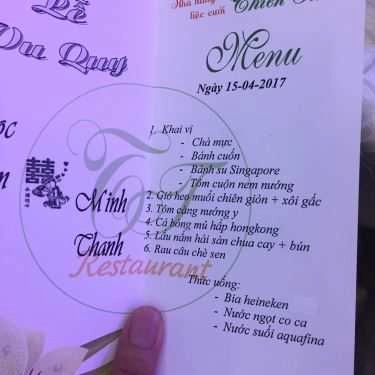 Lễ
Vu Quy
Minh
Thanh
Nhà hàng
tiệc cưới
Menu
Ngày 15-04-2017
1. Khai vị
- Chả mực
- Bánh cuốn
- Bánh su Singapore
- Tôm cuộn nem nướng
2. Giò heo muối chiên giòn + xôi gấc
3. Tôm càng nướng ý
4. Cá bống mú hấp hongkong
5. Lẩu nấm hải sản chua cay + bún
6. Rau câu chè sen
Restaurant
Thức uống:
- Bia heineken
- Nước ngọt co ca
- Nước suối aquafina